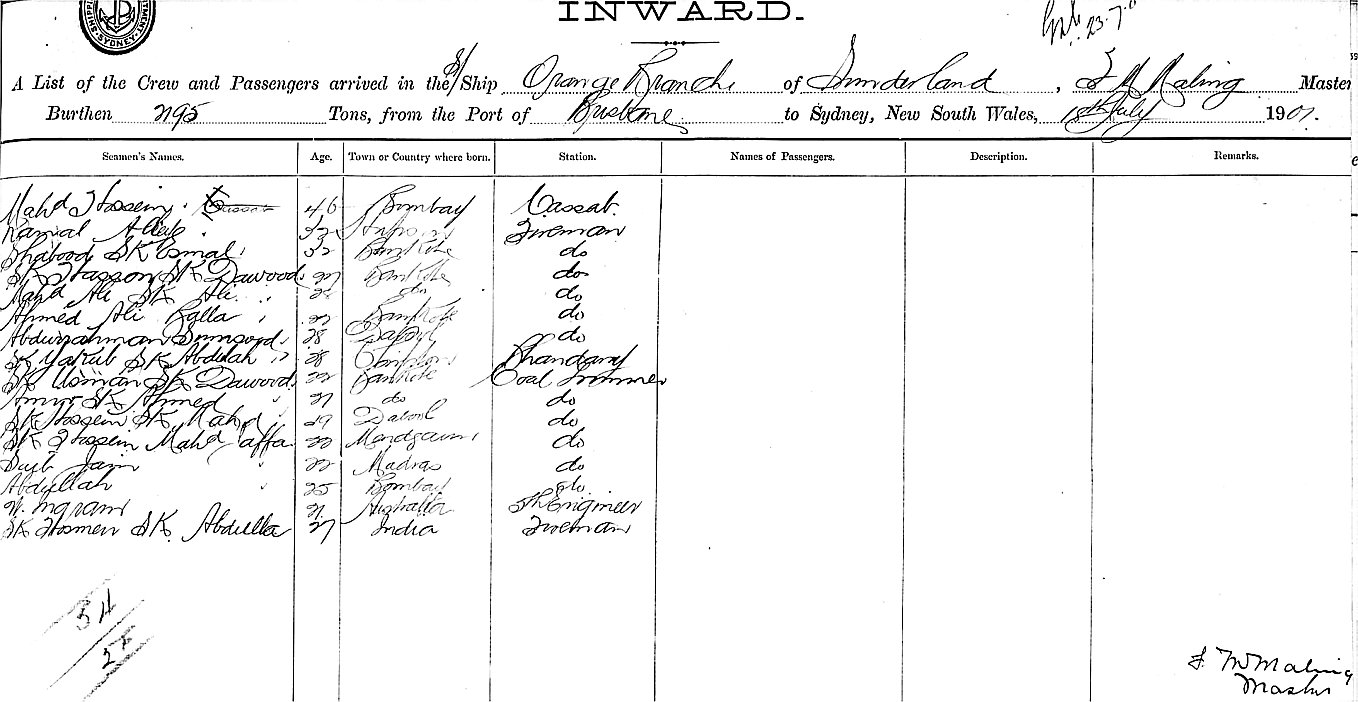 INWARD.
SYDNEY
23-7-0
A List of the Crew and Passengers arrived in the S/Ship Orange Branch of Sunderland, Maling Master
Burthen 2195 Tons, from the Port of Brisbane to Sydney, New South Wales, 18th July 1901.
Seamen's Names. Age. Town or Country where born. Station. Names of Passengers. Description. Remarks.
Mahd Hossein. Cassab 46 Bombay Cassab.
Kamal 32 Fireman
SK Esmal 32 Bankote do
SK Hasson SK Dawood 27 Bankote do
Mahd Ali SK Ali do do
Ahmed Ali 27 Bankote do
Abdurrahman 28 do
SK Yakub SK Abdulah 28 Bhandary
SK Usman SK Dawood Bankote Coal Trimmer
SK Ahmed 27 do do
SK Hossein SK Mahd 29 Dabool do
SK Hossein Mahd do
Jain 22 Madras do
Abdullah 25 Bombay do
Ingram 21 Australia Engineer
SK SK Abdulla 27 India Fireman
54
Maling
Master